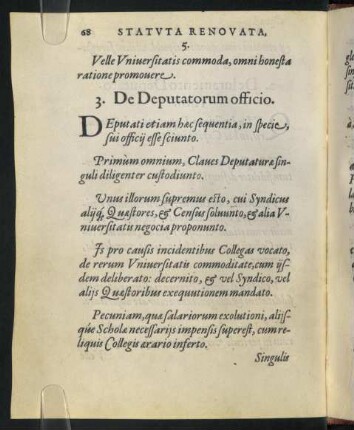 68 STATVTA RENOVATA,
5.
Velle Vniuersitatis commoda, omni honesta
ratione promouere.
3. De Deputatorum officio.
DEputati etiam hæc sequentia, in specie,
sui officij esse sciunto.
Primùm omnium, Claues Deputaturæ sin-
guli diligenter custodiunto.
Vnus illorum supremus esto, cui Syndicus
alijq́, Quæstores, & Census soluunto, & alia V-
niuersitatis negocia proponunto.
Is pro causis incidentibus Collegas vocato,
de rerum Vniuersitatis commoditate, cum ijs-
dem deliberato: decernito, & vel Syndico, vel
alijs Quæstoribus exequutionem mandato.
Pecuniam, quæ salariorum exolutioni, alijs-
q́ue Scholæ necessarijs impensis superest, cum re-
liquis Collegis ærario inferto.
Singulis